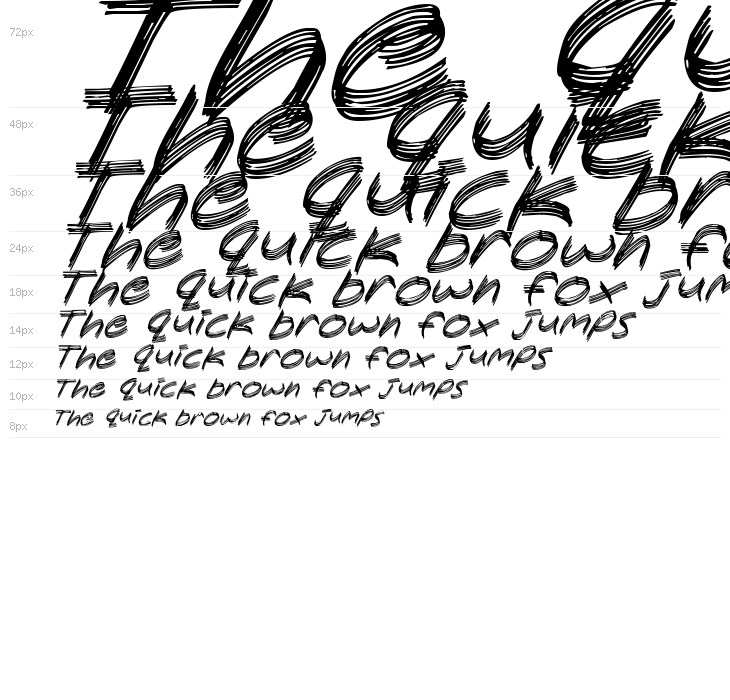 72px The qu
48px The quick
36px The quick br
24px The quick brown f
18px The quick brown fox jum
14px The quick brown fox jumps
12px The quick brown fox jumps
10px The quick brown fox jumps
8px The quick brown fox jumps